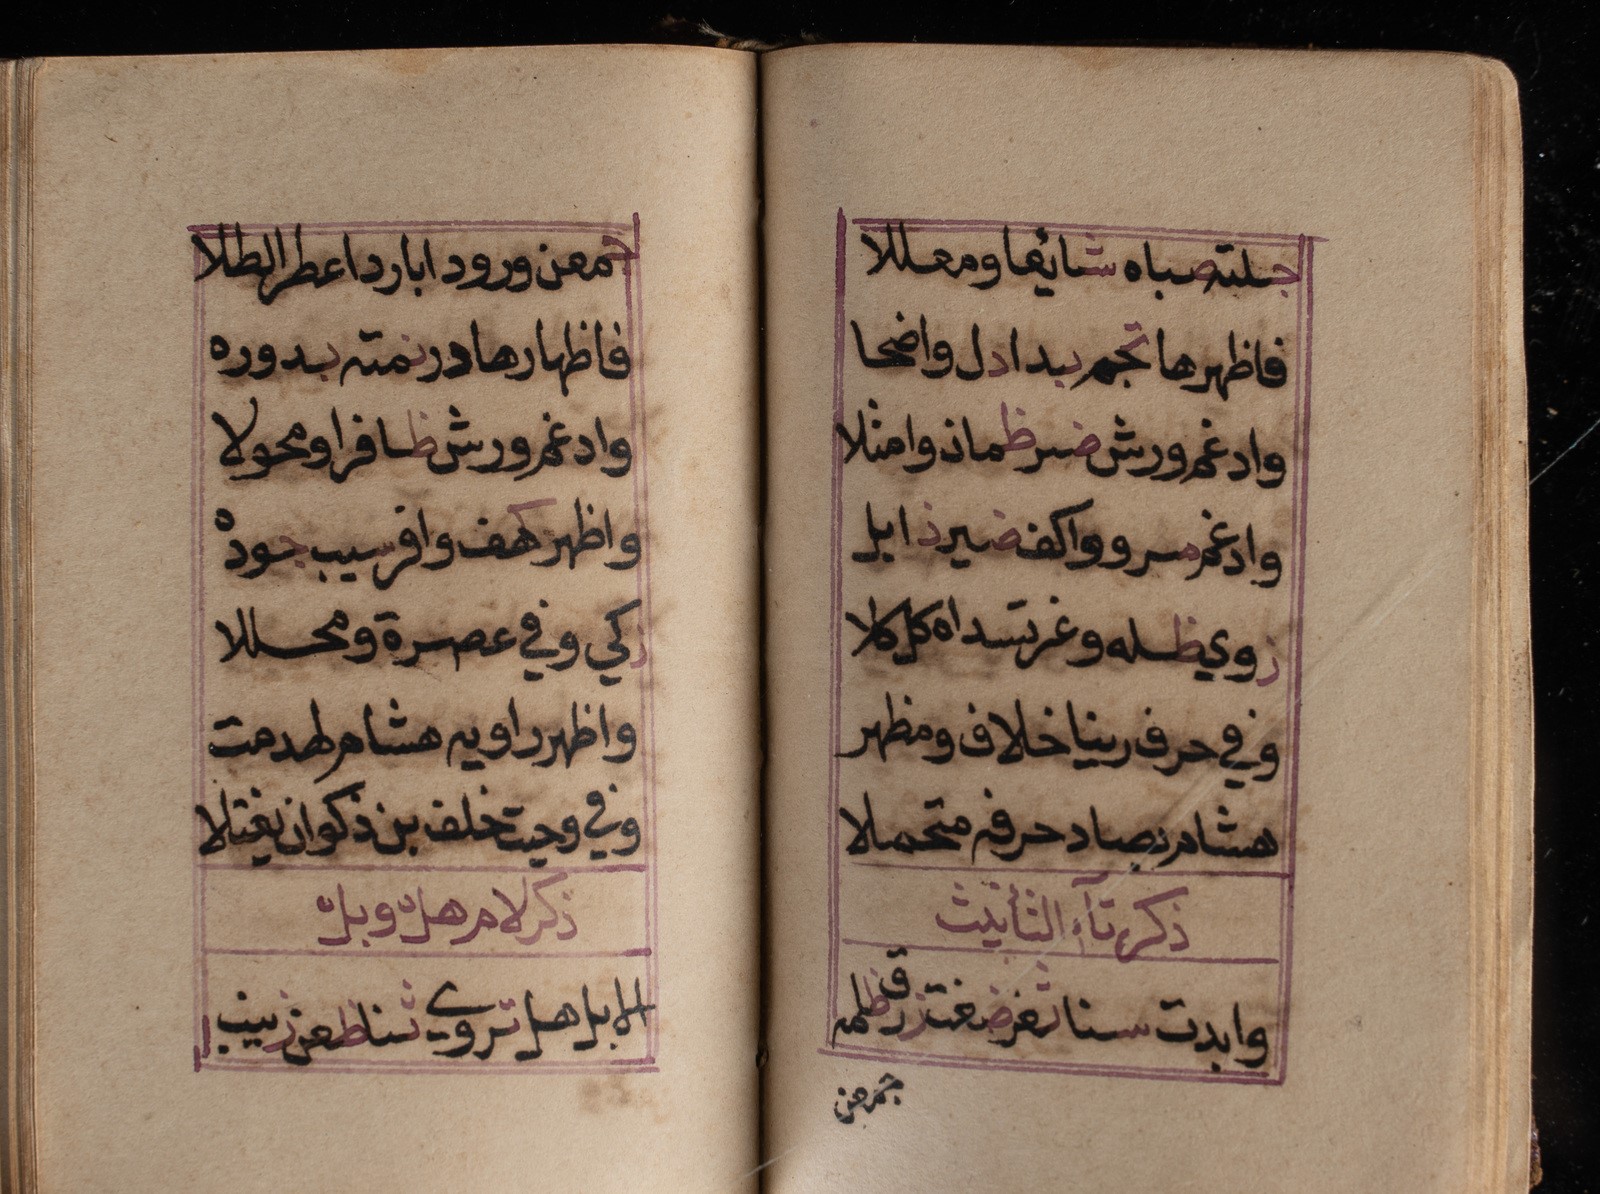 جلته صباه شايقا ومعللا
فاظهرها نجم بدا دل واضحا
وادغم ورش ضر ظمان وامثلا
وادغم مرو واكف ضير ذابل
زوي ظله وغر تسداه كلكلا
وفي حرف زينا خلاف ومظهر
هشام بصاد حرفه متحملا
ذكر تآء التأنيث
وابدت سنا ثغر صفت زرق ظلمه
جمعن
جمعن ورودا باردا عطر الطلا
فاظهارها در نمته بدوره
وادغم ورش ظافرا ومحولا
واظهر كهف وافر سيب جوده
زكي وفي عصرة ومحللا
واظهر راويه هشام لهدمت
وفي وجبت خلف بن ذكوان يفتلا
ذكر لام هل وبل
الا بل هل تروي ثنا ظعن زينب